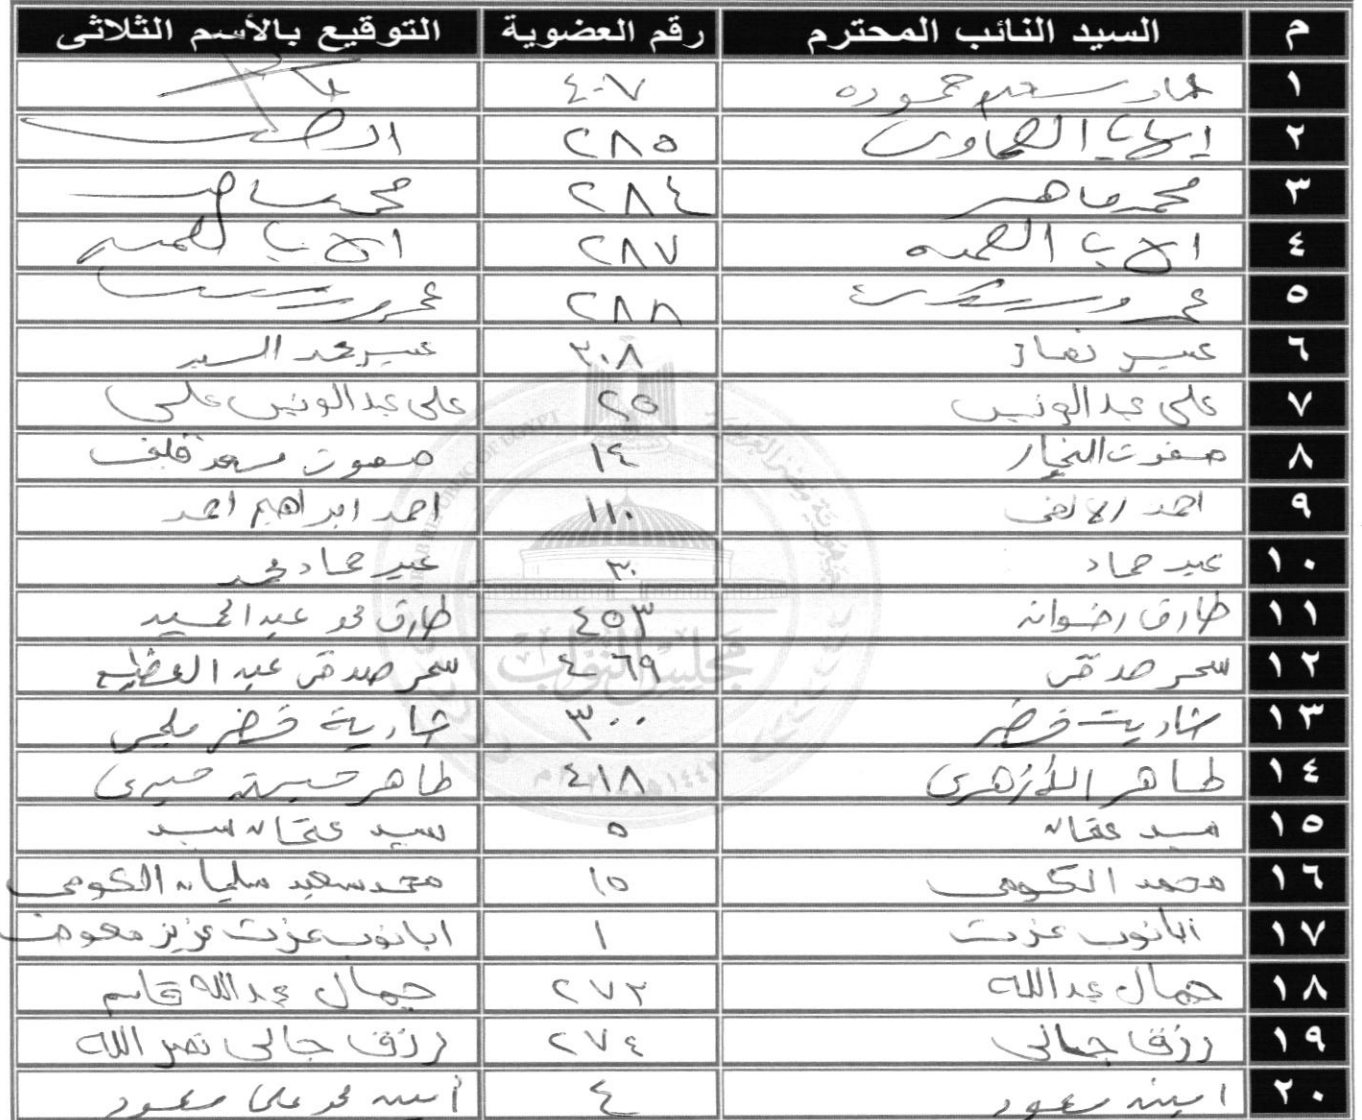 م السيد النائب المحترم رقم العضوية التوقيع بالأسم الثلاثى
١ عماد سعد حموده ٤٠٧
٢ إيهاب العماوى ٢٨٥
٣ محمد ماهر ٢٨٤ محمد ماهر
٤ ٢٨٧
٥ عمرو ٢٨٨ عمرو
٦ عبير ٣٠٨ عبير محمد السيد
٧ على عبدالونيس ٢٥ على عبدالونيس على
٨ صفوت النجار ١٤ صفوت مسعد
٩ احمد الالفى ١١٠ احمد ابراهيم احمد
١٠ عيد حماد ٣٠ عيد حماد محمد
١١ طارق رضوان ٤٥٣ طارق محمد عبدالحميد
١٢ سحر صدقى ٤٦٩ سحر صدقى عبد العظيم
١٣ شادية خضير ٣٠٠ شادية خضير
١٤ طاهر الأزهرى ٤١٨ طاهر
١٥ سيد عثمان ٥ سيد عثمان سيد
١٦ محمد الكومى ١٥ محمد سعيد سليمان الكومى
١٧ ابانوب عزت ١ ابانوب عزت عزيز معوض
١٨ جمال عبدالله ٢٧٢ جمال عبدالله قاسم
١٩ رزق جالى ٢٧٤ رزق جالى نصر الله
٢٠ امينه مسعود ٤ أمينه محمد على مسعود
مجلس النواب